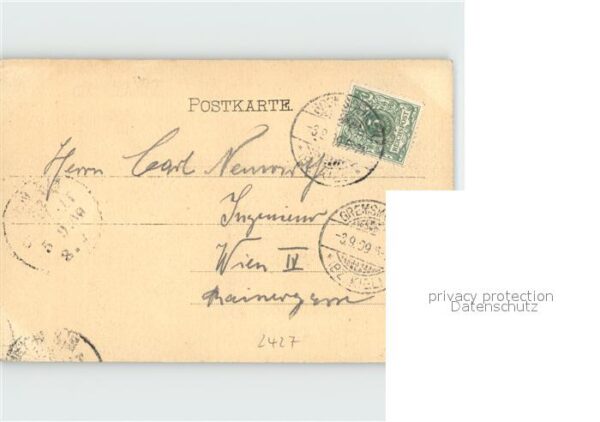 POSTKARTE
Herrn Carl
Ingenieur
Wien IV
Rainergasse
2427
GREMSM
-3.9.99
(BZ. KIEL)
5.9.
privacy protection
Datenschutz